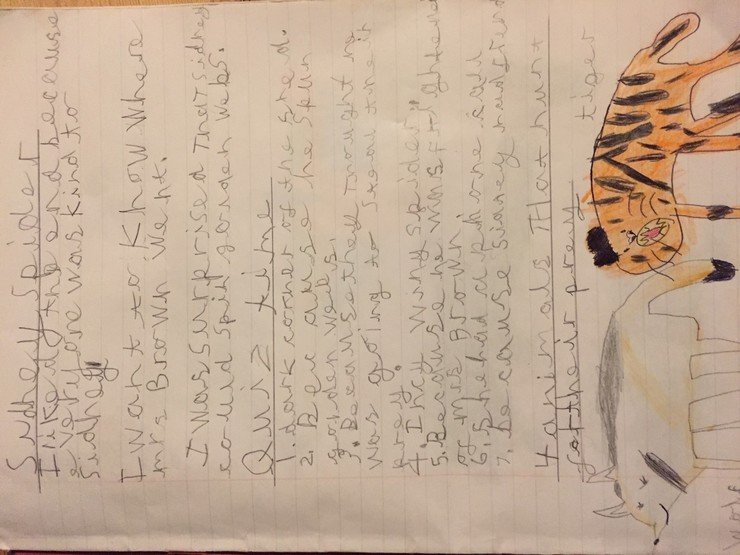 Sidney Spider
I liked the end because
everyone was kind to
Sidney
I want to know where
mrs Brown went.
I was surprised that sidney
could spin golden webs.
Quiz time
1. dark corner of the shed.
2. Because he spun
golden webs.
3. Because they thought he
was going to steal their
prey.
4. Incy winy spider
5. Because he was frightened
of mrs Brown.
6. she had a phone call
7. because sidney
4 animals that hunt
for their prey
tiger
wolf